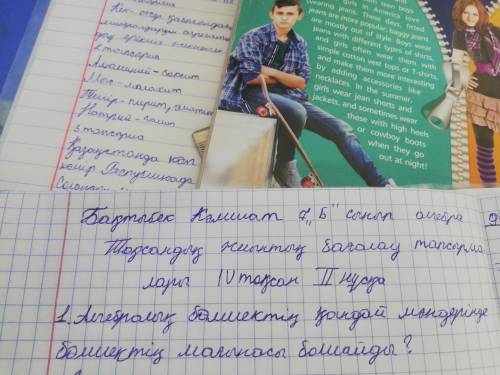 Кен
Алюминий - боксит
Мыс - малахит
Темір - пирит,
Натрий - галит
3 тапсырма
Қазақстанда көп
көмір Республикада
in America love
wearing jeans. These days, fitted
jeans are more popular; baggy jeans
are mostly out of style. Boys wear
jeans with different types of shirts,
and girls often wear them with
simple cotton vest tops or T-shirts,
and make them more interesting
by adding accessories like
necklaces. In the summer,
girls wear jean shorts and
jackets, and sometimes wear
these with high heels
or cowboy boots
when they go
out at night!
Бақтыбек Кәмшат 7 „Б" сынып алгебра
Тоқсандық жиынтық бағалау тапсырма
лары IV тоқсан II нұсқа
1. Алгебралық бөлшектің қандай мәндерінде
бөлшектің мағынасы болмайды?